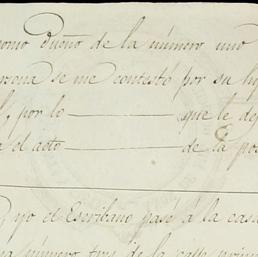 como dueño de la número uno
se me contestó por su hij
por lo ——— que le de
a el acto ——— de la po
yo el Escribano pasé á la casa
número tres de la calle